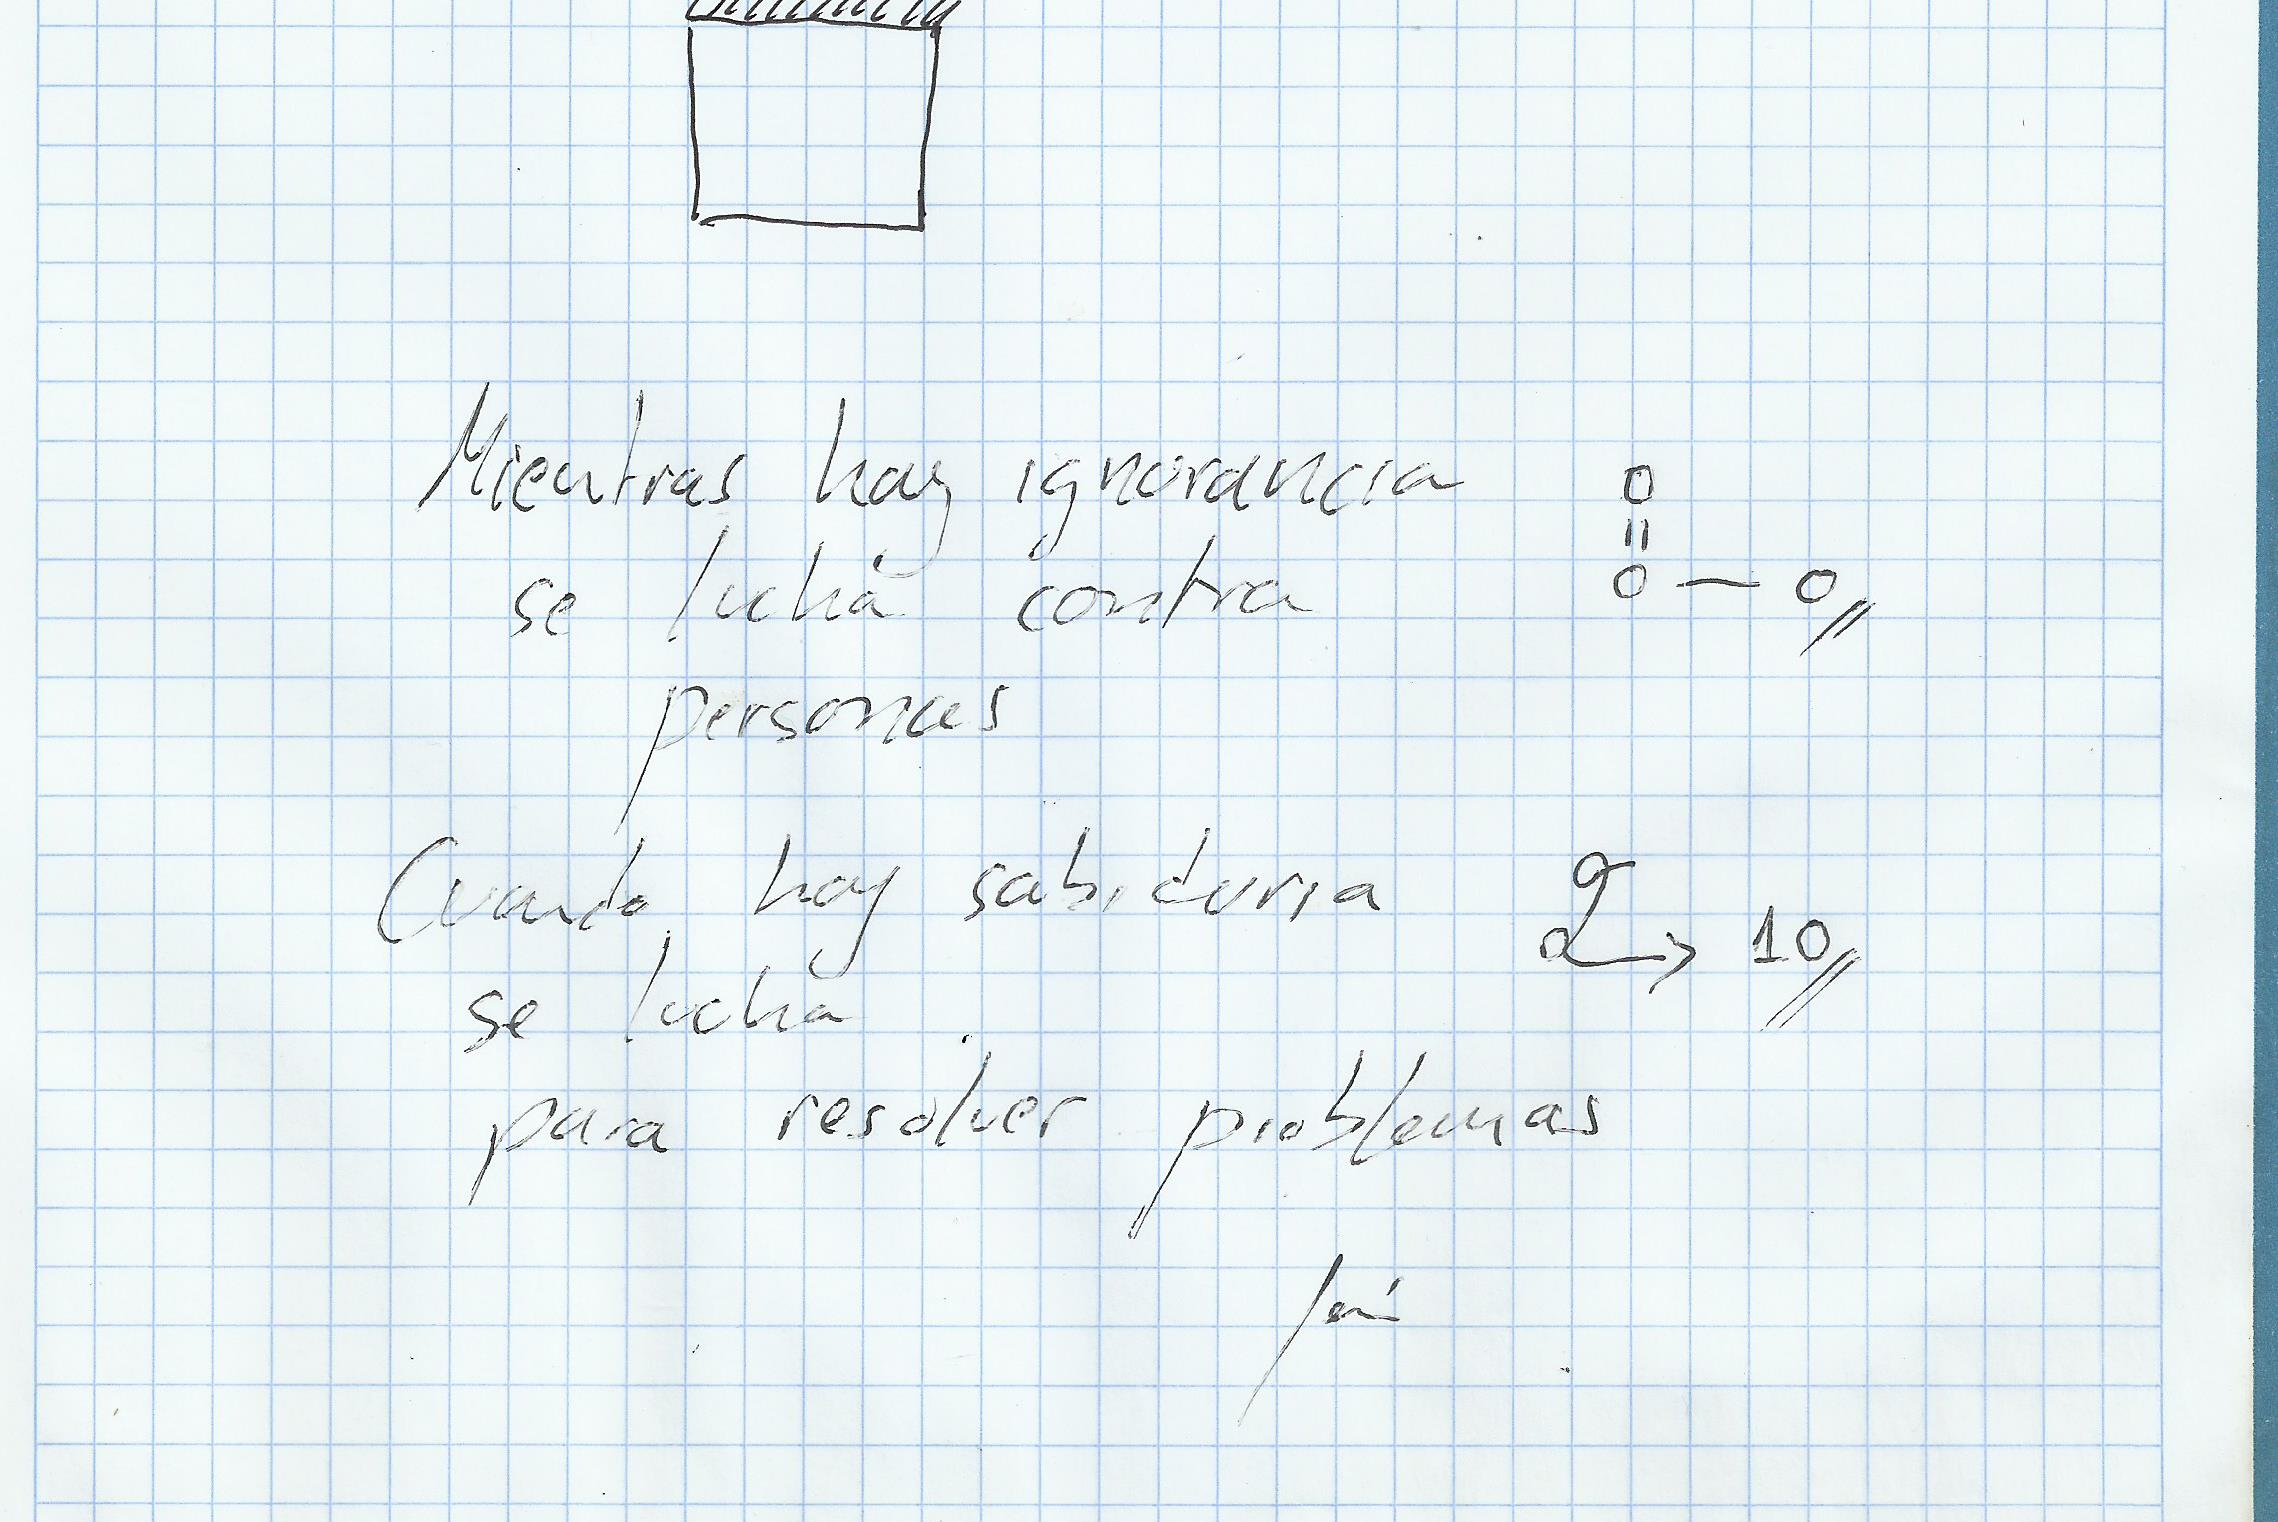 Mientras hay ignorancia
se lucha contra
personas
O
=
O — O
Cuando hay sabiduria
se lucha
para resolver problemas
→ 10